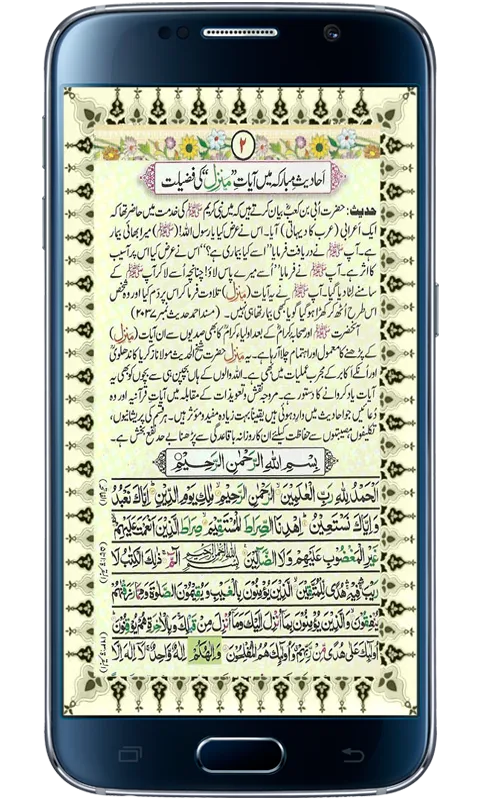 ۲
احادیث مبارکہ میں آیاتِ ”منزل“ کی فضیلت
حدیث: حضرت ابی بن کعبؓ بیان کرتے ہیں کہ میں نبی کریم ﷺ کی خدمت میں حاضر تھا کہ
ایک اعرابی (عرب کا دیہاتی) آیا۔ اس نے عرض کیا یا رسول اللہ! (ﷺ) میرا بھائی بیمار
ہے۔ آپ ﷺ نے دریافت فرمایا ”اسے کیا بیماری ہے؟“ اس نے عرض کیا اس پر آسیب
کا اثر ہے۔ آپ ﷺ نے فرمایا ”اُسے میرے پاس لاؤ! چنانچہ اُسے لا کر آپ ﷺ کے
سامنے لٹا دیا گیا۔ آپ ﷺ نے یہ آیات (منزل) تلاوت فرما کر اس پر دَم کیا اور وہ شخص
اس طرح اُٹھ کر کھڑا ہو گیا گویا کبھی بیمار تھا ہی نہیں۔ (مسند احمد حدیث نمبر
آنحضرت ﷺ اور صحابہ کرامؓ کے بعد اولیاء کرامؒ کا بھی صدیوں سے ان آیات (منزل)
کے پڑھنے کا معمول اور اہتمام چلا آ رہا ہے۔ یہ منزل حضرت شیخ الحدیث مولانا زکریا کاندھلویؒ
اور انکے اکابر کے مجرب عملیات میں بھی ہے۔ اللہ والوں کے ہاں بچپن ہی سے بچوں کو بھی یہ
آیات یاد کروانے کا دستور ہے۔ مروجہ نقش و تعویذات کے مقابلہ میں آیات قرآنیہ اور وہ
دُعائیں جو احادیث میں وارد ہوئی ہیں یقیناً بہت زیادہ مفید و مؤثر ہیں۔ ہر قسم کی پریشانیوں،
تکلیفوں، مصیبتوں سے حفاظت کیلئے ان کا روزانہ باقاعدگی سے پڑھنا بے حد نفع بخش ہے۔
بِسْمِ اللّٰهِ الرَّحْمٰنِ الرَّحِيْمِ
اَلْحَمْدُ لِلّٰهِ رَبِّ الْعٰلَمِيْنَ الرَّحْمٰنِ الرَّحِيْمِ مٰلِكِ يَوْمِ الدِّيْنِ اِيَّاكَ نَعْبُدُ
وَاِيَّاكَ نَسْتَعِيْنُ اِهْدِنَا الصِّرَاطَ الْمُسْتَقِيْمَ صِرَاطَ الَّذِيْنَ اَنْعَمْتَ عَلَيْهِمْ
غَيْرِ الْمَغْضُوْبِ عَلَيْهِمْ وَلَا الضَّآلِّيْنَ بِسْمِ اللّٰهِ الرَّحْمٰنِ الرَّحِيْمِ الٓمّٓ ذٰلِكَ الْكِتٰبُ لَا
رَيْبَ فِيْهِ هُدًى لِّلْمُتَّقِيْنَ الَّذِيْنَ يُؤْمِنُوْنَ بِالْغَيْبِ وَيُقِيْمُوْنَ الصَّلٰوةَ وَمِمَّا رَزَقْنٰهُمْ
يُنْفِقُوْنَ وَالَّذِيْنَ يُؤْمِنُوْنَ بِمَآ اُنْزِلَ اِلَيْكَ وَمَآ اُنْزِلَ مِنْ قَبْلِكَ وَبِالْاٰخِرَةِ هُمْ يُوْقِنُوْنَ
اُولٰٓئِكَ عَلٰى هُدًى مِّنْ رَّبِّهِمْ وَاُولٰٓئِكَ هُمُ الْمُفْلِحُوْنَ وَاِلٰهُكُمْ اِلٰهٌ وَّاحِدٌ لَآ اِلٰهَ اِلَّا